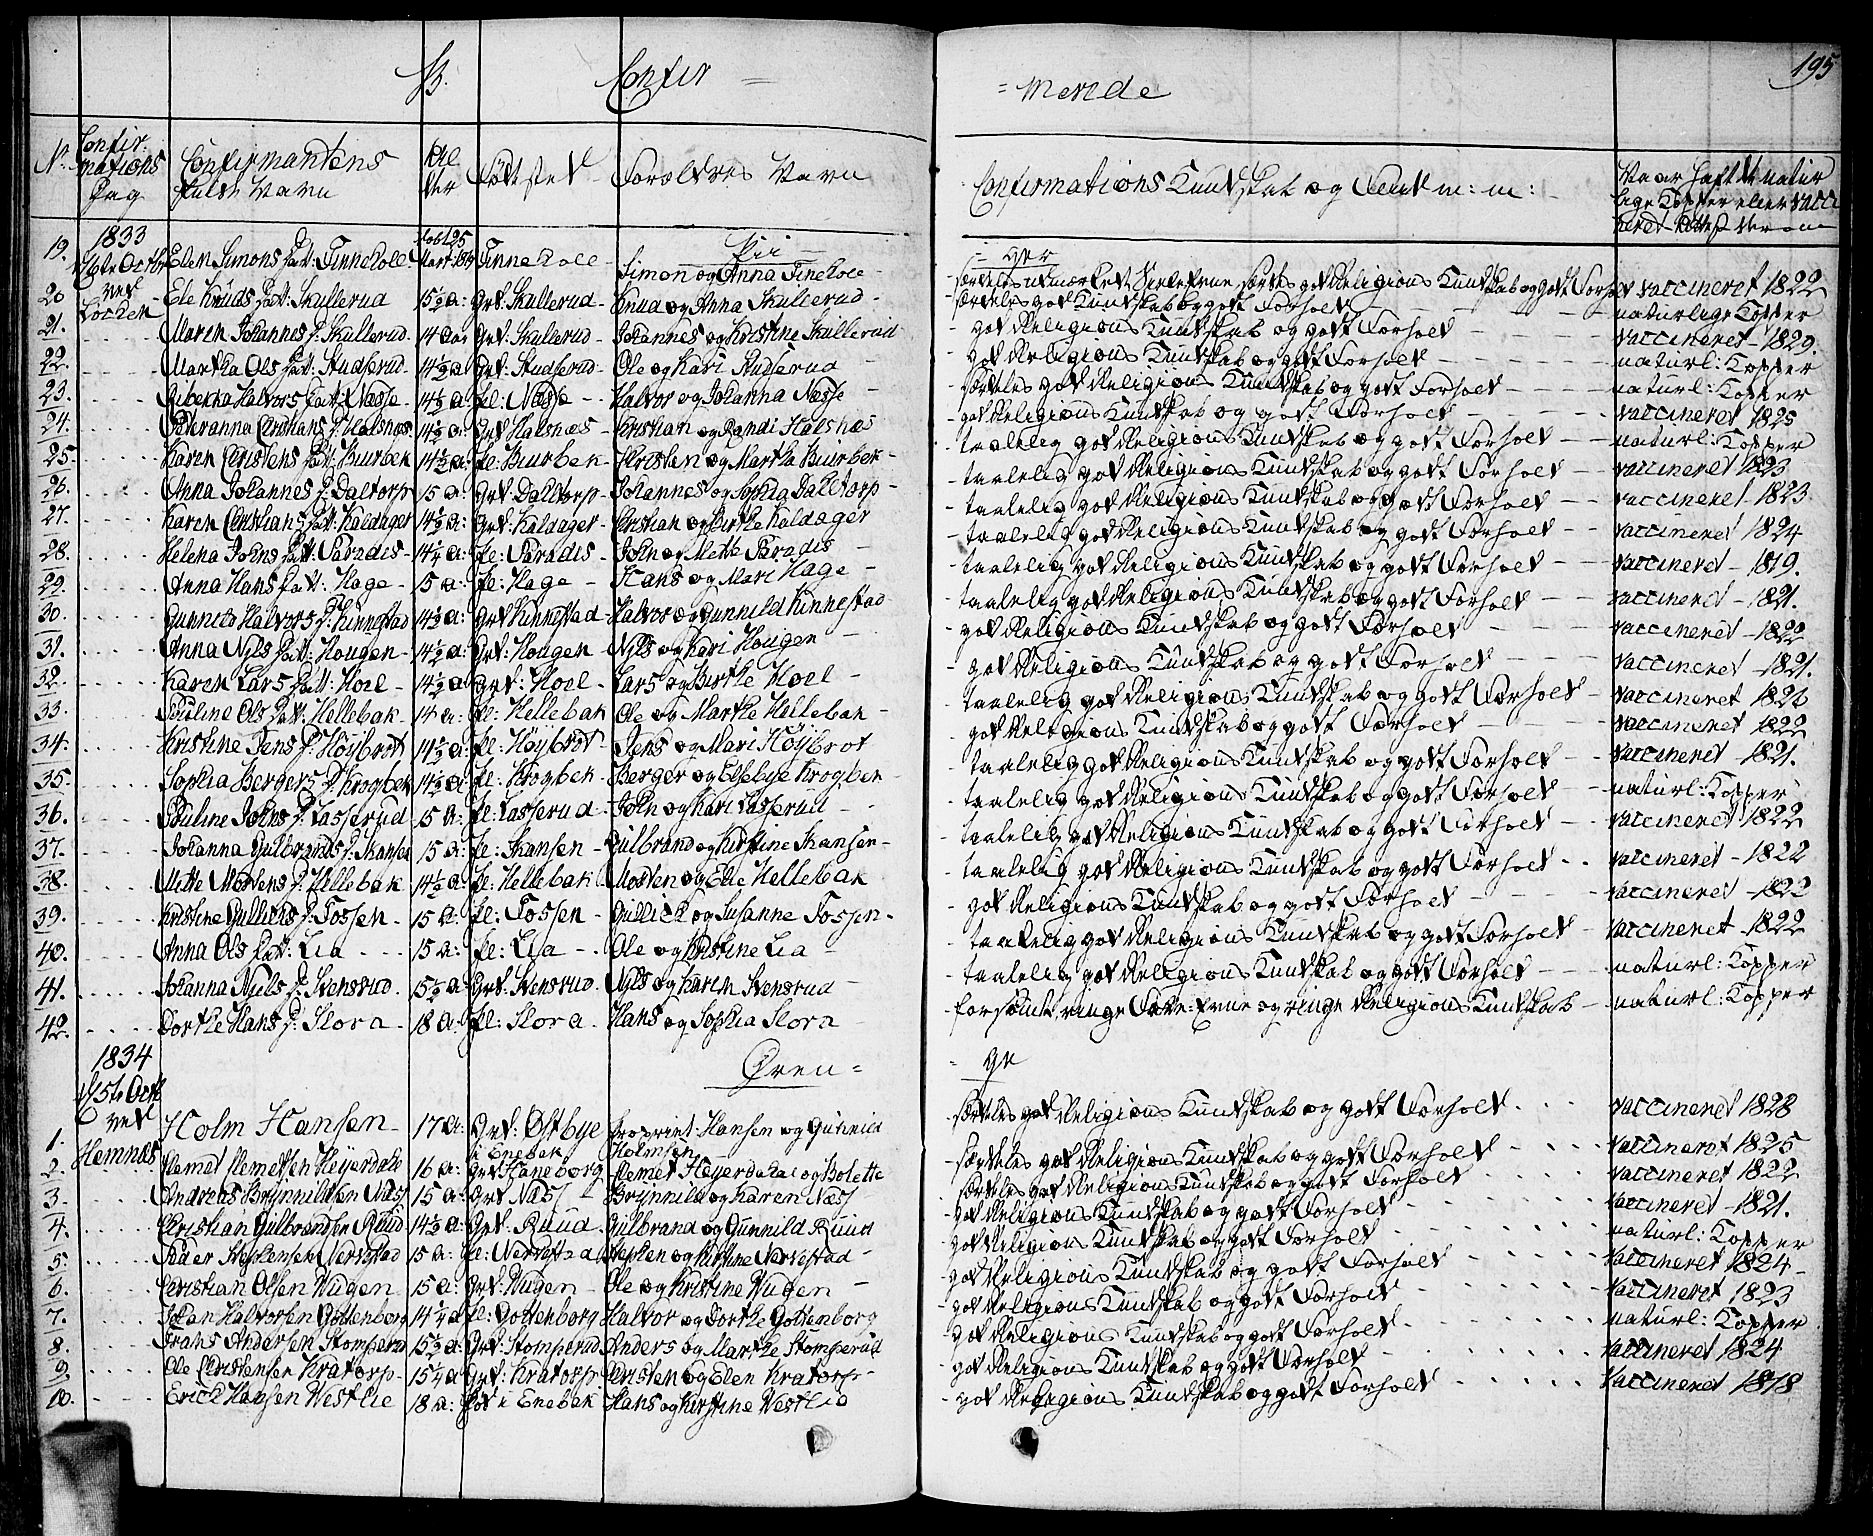 195
B. Confir = = merede
No. Confirmations Dag Confirmantens fulde Navn Alder Fødested Foreldres Navn Confirmations Kundskab og m: m: Naar haft de naturlige Kopper eller
1833 Pii = = ger
19. Octbr Elen Simons Finneholl Finneholl - Simon og Anna vaccineret 1822
20 ved Ele Knuds Skullerud 15½ a: Skullerud - Knud og Anna Skullerud - særdeles god Kundskab og godt Forhold naturlige Kopper
21. Maren Johannes D: Skullerud 14 Skullerud - Johannes og Kristine Skullerud god Religions Kundskab og godt Forhold vaccineret - 1829.
22. Martha Ols Dat: Studserud 14½ a Studserud - Ole og Kari Studserud god Religions Kundskab og godt Forhold naturl: Kopper
23. Ribekka Halvors Dat: Næsse 14½ a Næsse - Halvor og Johanna Næsse særdeles god Religions Kundskab og godt Forhold naturl: Kopper
24. Christians D: Halsnæs 14½ a: Halsnæs - Kristian og Randi Halsnæs god Religions Kundskab og godt Forhold vaccineret 1825
25. Karen Christens Dat: Buurbek 14½ a: Buurbek - Kristen og Martha Buurbek - taalelig god Religions Kundskab og godt Forhold naturl: Kopper
26. Anna Johannes D: Daltorp 15 a: Daltorp - Johannes og Sophia Daltorp - taalelig god Religions Kundskab og godt Forhold vaccineret 1823
27. Karen Christians Dat: Kaldager 14½ a: Kaldager - Kristian og Birthe Kaldager taalelig god Religions Kundskab og godt Forhold vaccineret - 1823
28. Helena Johns Dat: Paradis - 14¼ a: Paradis - John og Mette Paradis - taalelig god Religions Kundskab og godt Forhold vaccineret 1824
29. Anna Hans Dat: Hage - 15 a: Hage - Hans og Mari Hage - taalelig god Religions Kundskab og godt Forhold vaccineret - 1819.
30. Gunnild Halvors D: Kinnestad 14½ a: Kinnestad - Halvor og Gunnild Kinnestad taalelig god Religions Kundskab og godt Forhold vaccineret - 1821.
31. Anna Nils Dat: Hougen - 14½ a: Hougen Nils og Kari Hougen - god Religions Kundskab og godt Forhold vaccineret - 1822
32. Karen Lars Dat: Hoel - 14½ a Hoel - Lars og Birthe Hoel - god Religions Kundskab og godt Forhold vaccineret - 1821.
33. Pauline Ols Dat: Hellebak - 14 a: Hellebak Ole og Marthe Hellebak - taalelig god Religions Kundskab og godt Forhold vaccineret
34. Kristine Jens D: Höybrot 14½ a: Höybrot - Jens og Mari Höybrot god Religions Kundskab og godt Forhold vaccineret 1822
35. Sophia Bergers D: Krogbek 14½ a: Krogbek - Berger og Elsebye Krogbek - taalelig god Religions Kundskab og godt Forhold vaccineret - 1821.
36. Pauline Johns D: Lasserud 15 a: Lasserud - John og Kari Lasserud - taalelig god Religions Kundskab og godt Forhold naturl: Kopper
37. Johanna Gulbrands D: Skansen 15 a: Skansen - Gulbrand og Kirstine Skansen - taalelig god Religions Kundskab og godt Forhold vaccineret 1822
38. Mette Mortens D: Hellebak 14½ a Hellebak Morten og Elie Hellebak taalelig god Religions Kundskab og godt Forhold vaccineret - 1822
39. Kristine Gullicks D: Fossen - 15 a: Fossen - Gullick og Susanne Fossen - god Religions Kundskab og godt Forhold vaccineret - 1822
40. Anna Ols Dat: Lia 15 a: Lia - Ole og Kristine Lia - taalelig god Religions Kundskab og godt Forhold vaccineret - 1822
41. Johanna Niels D: Stensrud 15½ a Stensrud - Nils og Karen Stensrud - taalelig god Religions Kundskab og godt Forhold naturl: Kopper
42. Dorthe Hans D: Slora - 18 a: Slora - Hans og Sophia Slora - forsömt ringe og ringe Religions Kundskab naturl: Kopper
1834 Dren = = ge
ved Hemnæs
1. Holm Hansen - 17 a: Østbye i Enebak Proprint: Hansen og Gunnild Holmsen særdeles god Religions Kundskab og godt Forhold vaccineret 1828
2. Klemet Klemetsen Heyerdahl 16 a: Haneborg Klemet Heyerdahl og Bolette særdeles god Religions Kundskab og godt Forhold vaccineret 1825
3. Andreas Brynnildsen Næss 15 a: Næss - Brynnild og Karen Næss særdeles god Religions Kundskab og godt Forhold vaccineret 1822
4. Christian Gulbrandsen Ruud 14½ a: Ruud - Gulbrand og Gunnild Ruud god Religions Kundskab og godt Forhold vaccineret - 1821.
5. Peder Nerestad 15 a: Nerestad og Kirstine Nerestad - god Religions Kundskab og godt Forhold naturl: Kopper
6. Christian Olsen Nugen - 15 a: Nugen - Ole og Kristine Nugen - god Religions Kundskab og godt Forhold vaccineret 1824
7. Johan Halvorsen Gottenborg 14¼ a Gottenborg Halvor og Dorthe Gottenborg god Religions Kundskab og godt Forhold vaccineret 1823
8. Frans Andersen Stomperud 15½ a: Stomperud Anders og Marthe Stomperud god Religions Kundskab og godt Forhold naturl: Kopper
9. Ole Christensen Kratorp - 15¼ a Kratorp Christen og Eden Kratorp - god Religions Kundskab og godt Forhold vaccineret 1824
10. Erick Hansen Westlie 18 a: i Enebak Hans og Kirstine Westlie god Religions Kundskab og godt Forhold vaccineret 1818